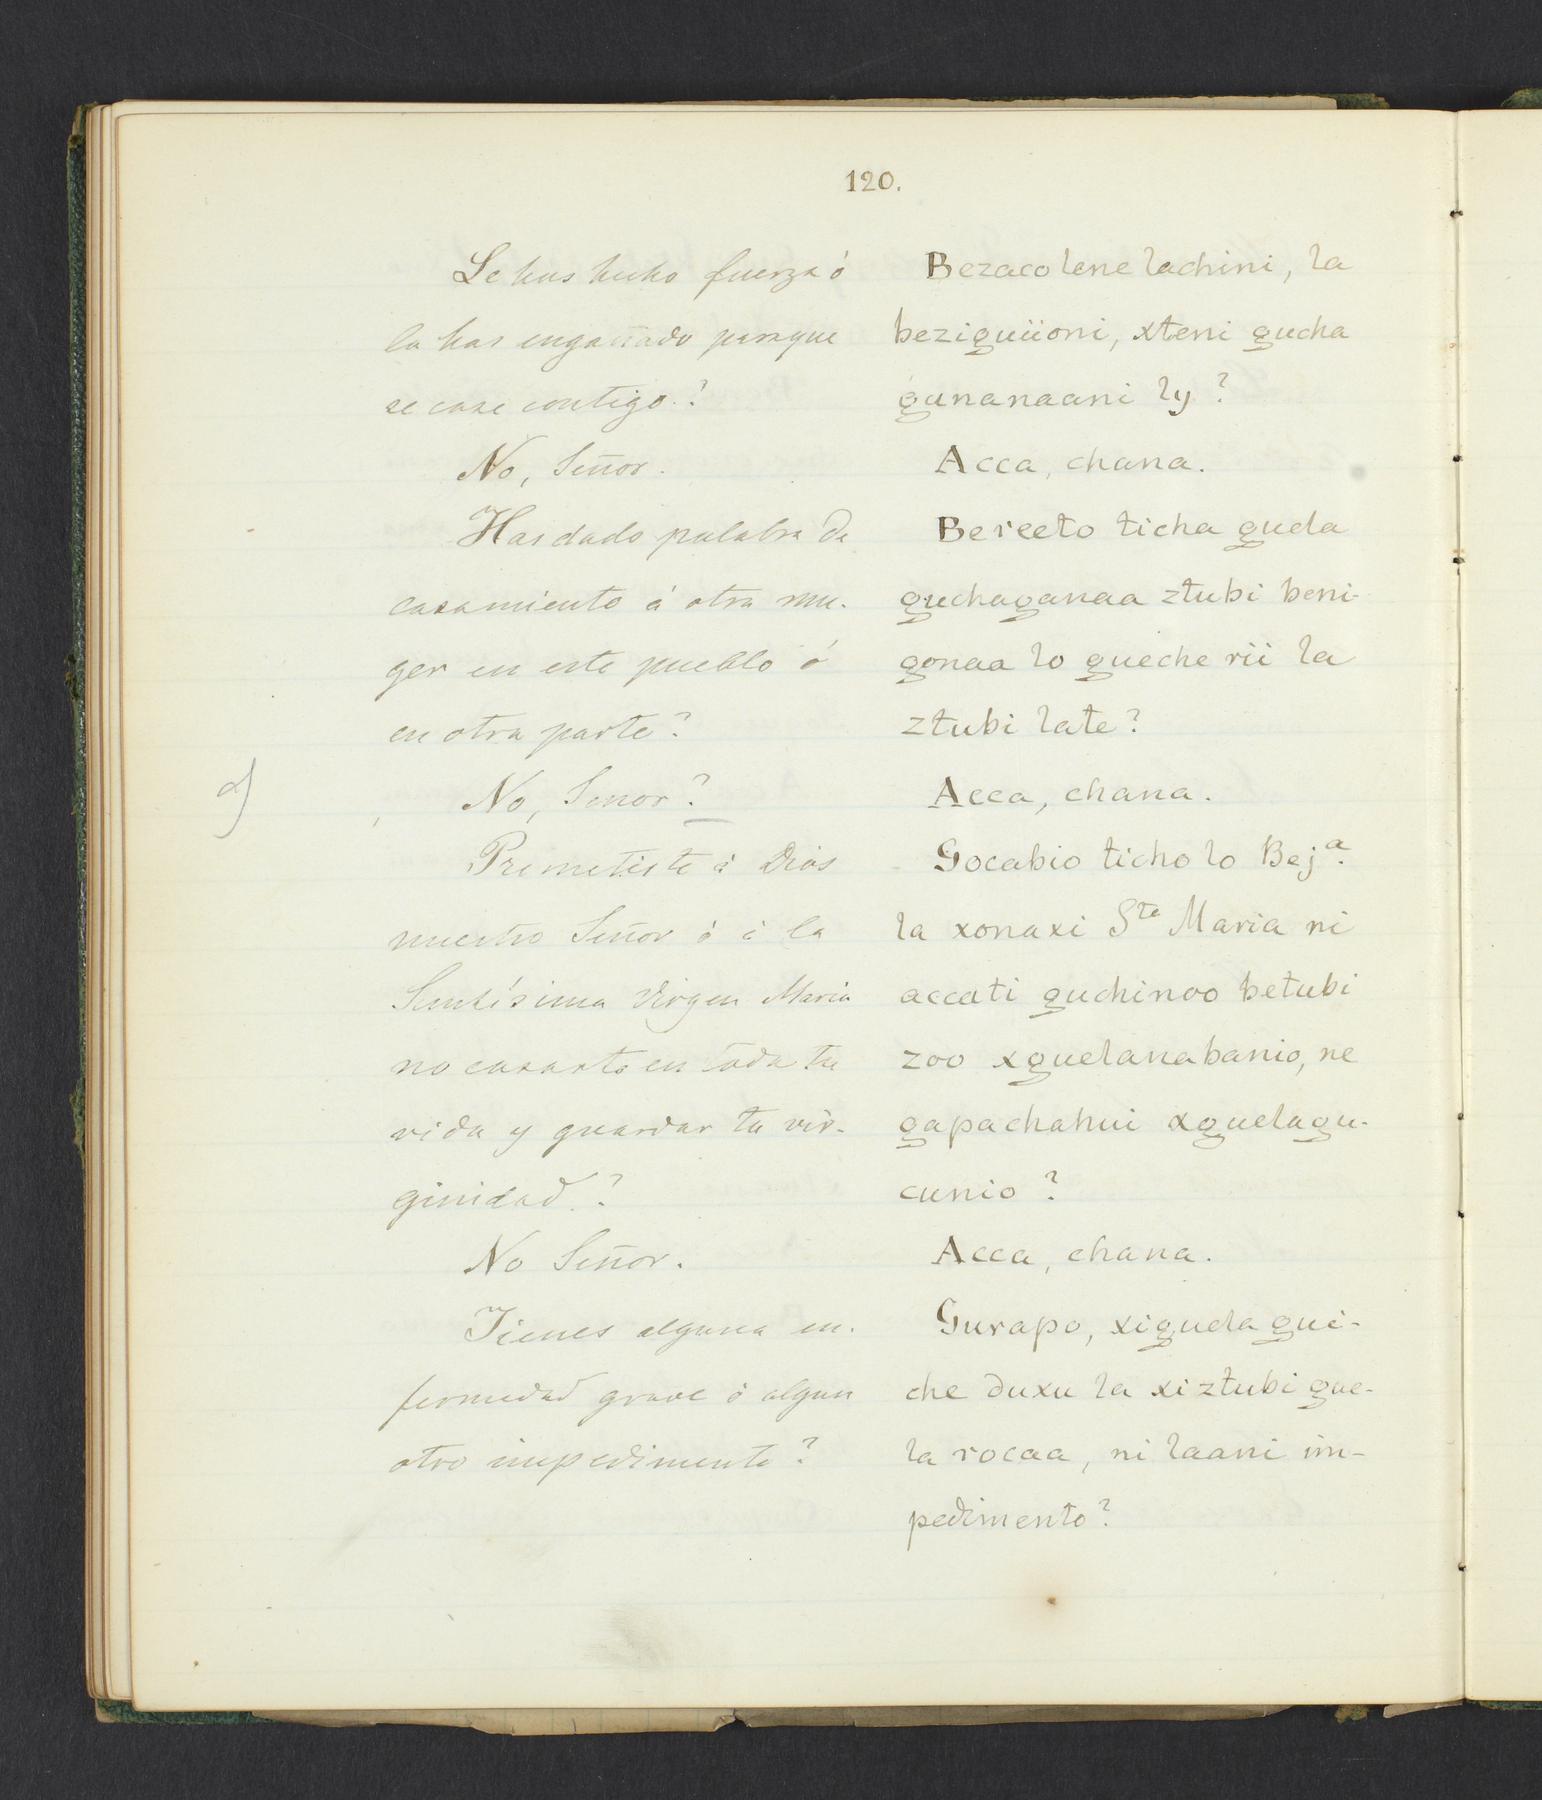 120.
Le has hecho fuerza ó
la has engañado paraque
se case contigo?
No, Señor.
Has dado palabra de
casamiento á otra mu-
ger en este pueblo ó
en otra parte?
No, Senor?
Prometiste á Dios
nuestro Señor ó á la
Santísima Virgen Maria
no casarte en toda tu
vida y guardar tu vir-
ginidad?
No Señor.
Tienes alguna en-
fermedad grave ó algun
otro impedimento?
Bezaco lene lachini, la
beziguiioni, xteni gucha
gunanaani ly?
Acca, chana.
Bereeto ticha guela
guchaganaa ztubi beni-
gonaa lo gueche rii la
ztubi late?
Acca, chana.
Gocabio ticho lo Bejª.
la xonaxi Sta Maria ni
accati guchinoo betubi
zoo xguelanabanio, ne
gapachahui xguelagu-
cunio?
Acca, chana.
Gurapo, xiguela gui-
che duxu la xi ztubi gue-
la rocaa, ni laani im-
pedimento?